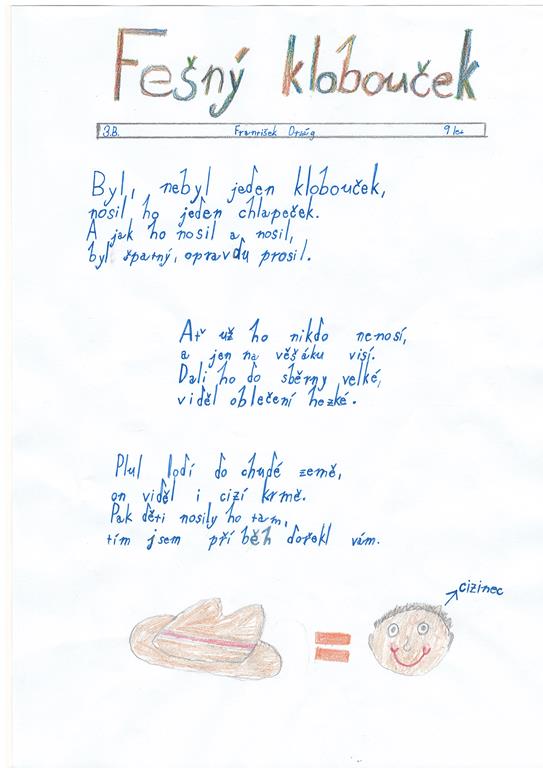 Fešný klobouček
3.B. František 9 let
Byl, nebyl jeden klobouček,
nosil ho jeden chlapeček.
A jak ho nosil a nosil,
byl špatný, opravdu prosil.
Ať už ho nikdo nenosí,
a jen na věšáku visí.
Dali ho do sběrny velké,
viděl oblečení hezké.
Plul lodí do chudé země,
on viděl i cizí krmě.
Pak děti nosily ho tam,
tím jsem příběh dořekl vám.
cizinec
=